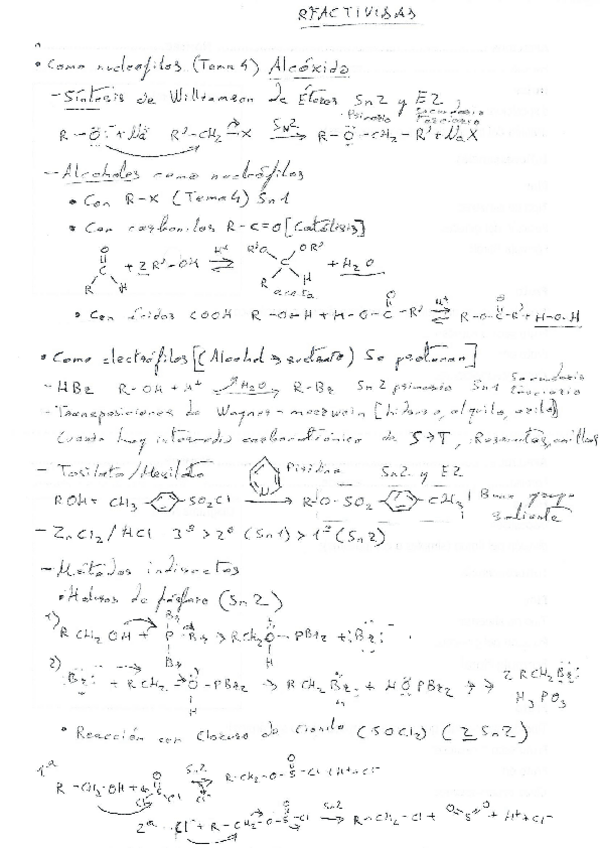 REACTIVIDAD
• Como nucleófilos (Tema 4) Alcóxido
- Síntesis de Williamson de Éteres Sn2 y E2
Primario Secundario Terciario
R-O: + Na R'-CH2-X SN2 → R-O-CH2-R' + NaX
- Alcoholes como nucleófilos
• Con R-X (Tema 4) Sn1
• Con carbonilos R-C=O [Catálisis]
O R'O OR'
C + 2R'-OH H+ ⇌ C + H2O
R H R H
• Con ácidos COOH R-O-H + H-O-C-R' H+ ⇌ R-O-C-R' + H-O-H
• Como electrófilos [(Alcohol → sustrato) Se protonan]
- HBr R-OH + H+ H2O R-Br Sn2 primario Sn1 Secundario Terciario
- Transposiciones de Wagner-meerwein [hidruro, alquilo, arilo]
Cuando hay intermedio carbocatiónico de S→T,
- Tosilato/Mesilato Piridina Sn2 y E2
ROH + CH3 SO2Cl → R-O-SO2 CH3 Buen grupo
saliente
- ZnCl2/HCl 3º > 2º (Sn1) > 1º (Sn2)
- Métodos indirectos
• Haluros de fósforo (Sn2)
1) RCH2OH + P Br → RCH2O-PBr2 + :Br:
Br Br H
2) :Br: + RCH2-O-PBr2 → RCH2Br: + HOPBr2 →→ 2 RCH2Br:
H H3PO3
• Reacción con Cloruro de tionilo (SOCl2) (2 Sn2)
1ª R-CH2-OH + S Sn2 R-CH2-O-S-Cl + H+ + Cl-
2ª Cl- + R-CH2-O-S-Cl Sn2 → R-CH2-Cl + O=S=O + H+ + Cl-